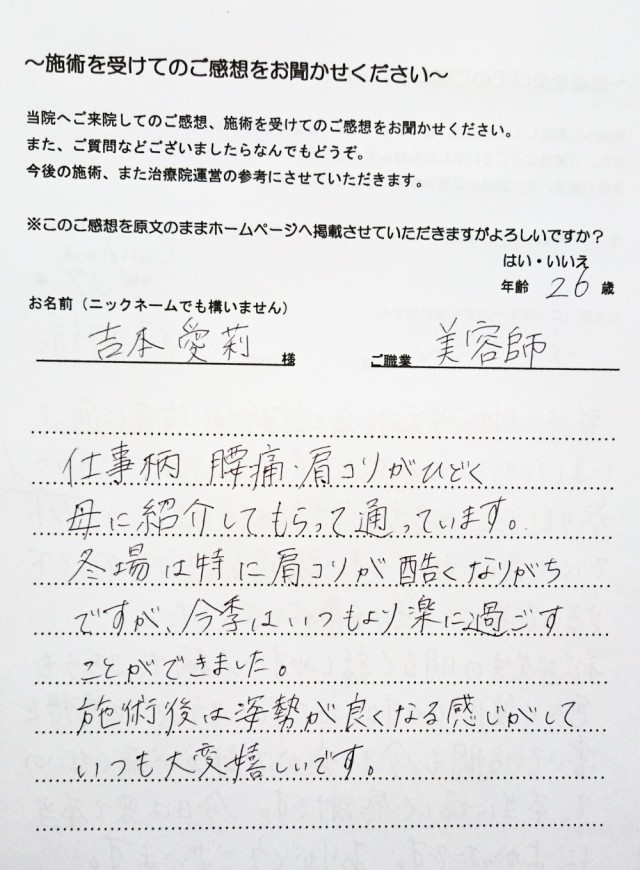 ～施術を受けてのご感想をお聞かせください～
当院へご来院してのご感想、施術を受けてのご感想をお聞かせください。
また、ご質問などございましたらなんでもどうぞ。
今後の施術、また治療院運営の参考にさせていただきます。
※このご感想を原文のままホームページへ掲載させていただきますがよろしいですか？
はい・いいえ
年齢 26 歳
お名前（ニックネームでも構いません）
吉本 愛莉 様 ご職業 美容師
仕事柄 腰痛・肩コリがひどく
母に紹介してもらって通っています。
冬場は特に肩コリが酷くなりがち
ですが、今季はいつもより楽に過ごす
ことができました。
施術後は姿勢が良くなる感じがして
いつも大変嬉しいです。